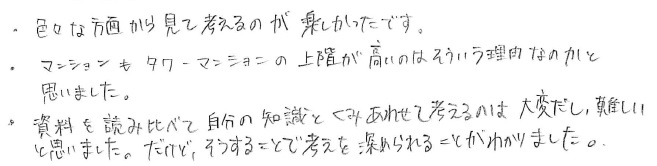 ・色々な方面から見て考えるのが楽しかったです。
・マンションもタワーマンションの上階が高いのはそういう理由なのかと
思いました。
・資料を読み比べて自分の知識とくみあわせて考えるのは大変だし、難しい
と思いました。だけど、そうすることで考えを深められることがわかりました。